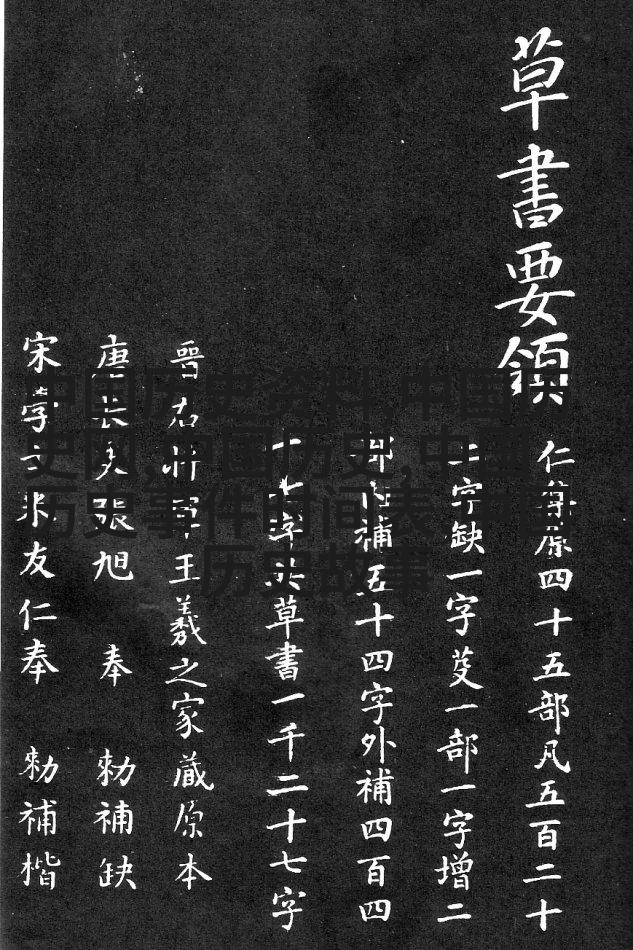 草書要領
仁原四十五部凡五百二十
字缺一字芟一部一字增二
部內補五十四字外補四百四
十七字共草書一千二十七字
晉右將軍王羲之家蔵原本
唐長史張旭 奉 勅補缺
宋學士米友仁奉 勅補楷
中国历史资料,中国历
史网,中国历史,中国
历史事件时间表,中国
历史故事